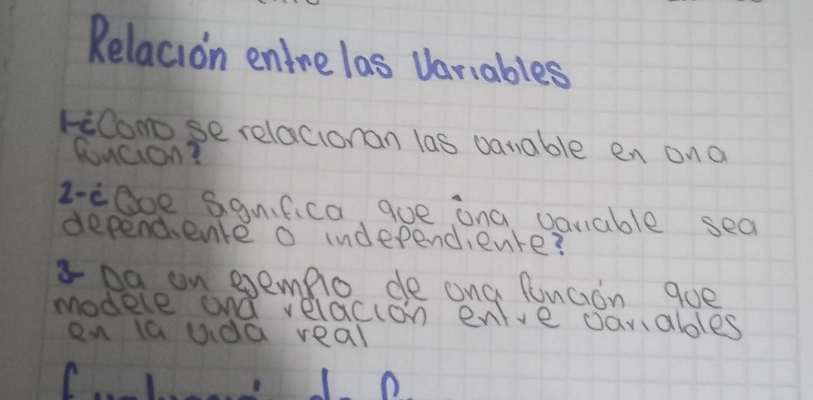 Relación entre las Variables
1-¿Como se relacionan las variable en una
función?
2-¿Que significa que una variable sea
dependiente o independiente?
3- Da un ejemplo de una función que
modele una relación entre variables
en la vida real